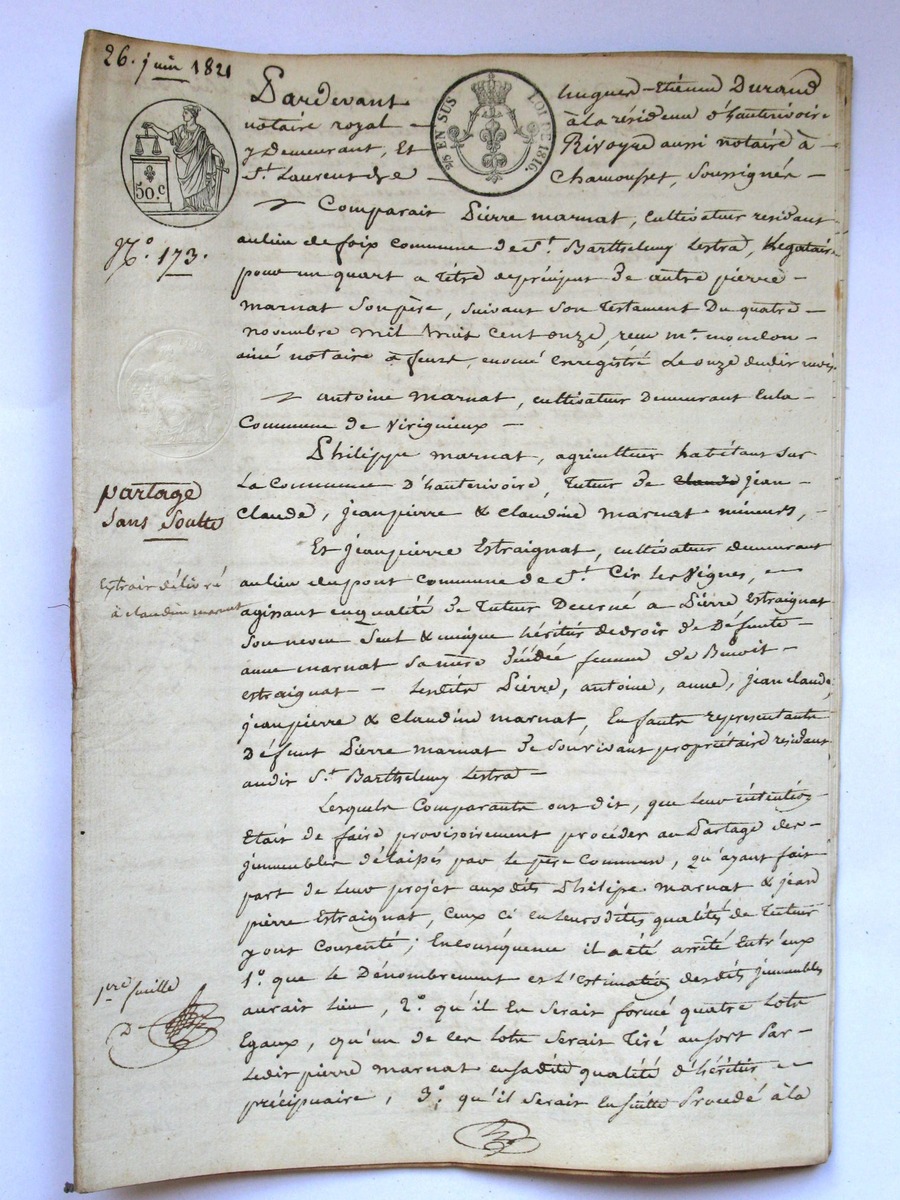 26. juin 1821
Pardevant hugues-étienne Durand
notaire royal - à la résidence d'hauterivoire
y demeurant, Et Rivoyre aussi notaire à -
St. Laurent de Chamousset, Soussignés -
5/5 EN SUS LOI DE 1816.
50.c
N.o 173.
Comparait Pierre marnat, Cultivateur residant
au lieu de foix commune de St. Barthelemy Lestra, Légataire
pour un quart a titre de préciput de autre pierre -
marnat Son père, suivant Son Testament Du quatre -
novembre mil huit cent onze, reçu me.
ainé notaire à feurs, Enregistré Le onze dudit mois
antoine marnat, cultivateur Demeurant En la -
Commune de Virignieux -
Philippe marnat, agriculteur habitant sur
La Commune D'hauterivoire, Tuteur de claude jean -
Claude, jeanpierre & Claudine marnat mineurs, -
partage
Sans Soulte
Et jeanpierre Estraignat, cultivateur demeurant
au lieu du pont Commune de St. Cir les Vignes, -
agissant en qualité de Tuteur Décerné a Pierre Estraignat
Son neveu Seul & unique héritier de droit de Défunte -
anne marnat Sa mère Décédée femme de Benoit -
Estraignat - Lesdits Pierre, antoine, anne, jean claude,
jeanpierre & Claudine marnat, Enfants représentants
Défunt Pierre marnat de Son vivant propriétaire residant
audit St. Barthelemy Lestra -
Extrait délivré
à claudine marnat
Lesquels Comparants ont dit, que Leur intention
était de faire provisoirement procéder au Partage des -
immeubles délaissés par le père Commun, qu'ayant fait
part de Leur projet auxdits Philipe marnat & jean
pierre Estraignat, Ceux ci en leursdites qualités de Tuteur
y ont Consenti; En conséquence il a été arrêté Entr'eux
1.o que le Dénombrement et L'Estimation desdits immeubles
aurait Lieu, 2.o qu'il En serait formé quatre Lots
Egaux, qu'un de ces Lots Serait Tiré au sort Par -
Ledit pierre marnat en sadite qualité d'héritier -
précipuaire, 3.o qu'il Serait Ensuite Procédé à la
1ere feuille
D